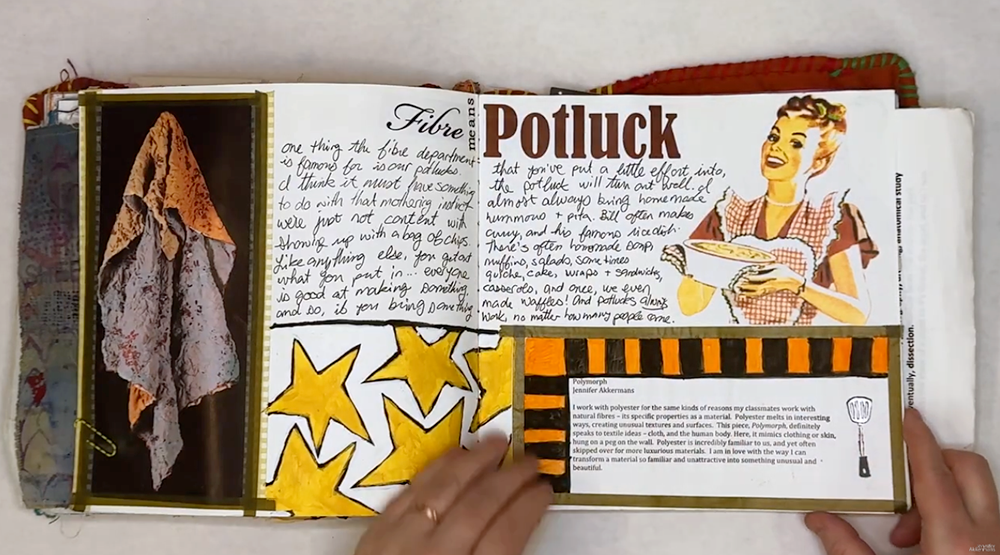 Fibre
means
Potluck
one thing the fibre department
is famous for is our potlucks.
I think it must have something
to do with that mothering instinct
were just not content with
showing up with a bag of chips.
Like anything else, you get out
what you put in... everyone
is good at making something
and so, if you bring something
that you've put a little effort into,
the potluck will turn out well. I
almost always bring homemade
hummous + pita. Bill often makes
curry, and his famous rice dish.
There's often homemade soup,
muffins, salads, sometimes
quiche, cake, wraps + sandwiches,
casserole, and once, we even
made waffles! And potlucks always
work, no matter how many people come.
Polymorph
Jennifer Akkermans
I work with polyester for the same kinds of reasons my classmates work with
natural fibres – its specific properties as a material. Polyester melts in interesting
ways, creating unusual textures and surfaces. This piece, Polymorph, definitely
speaks to textile ideas – cloth, and the human body. Here, it mimics clothing or skin,
hung on a peg on the wall. Polyester is incredibly familiar to us, and yet often
skipped over for more luxurious materials. I am in love with the way I can
transform a material so familiar and unattractive into something unusual and
beautiful.
anatomical study
eventually, dissection.